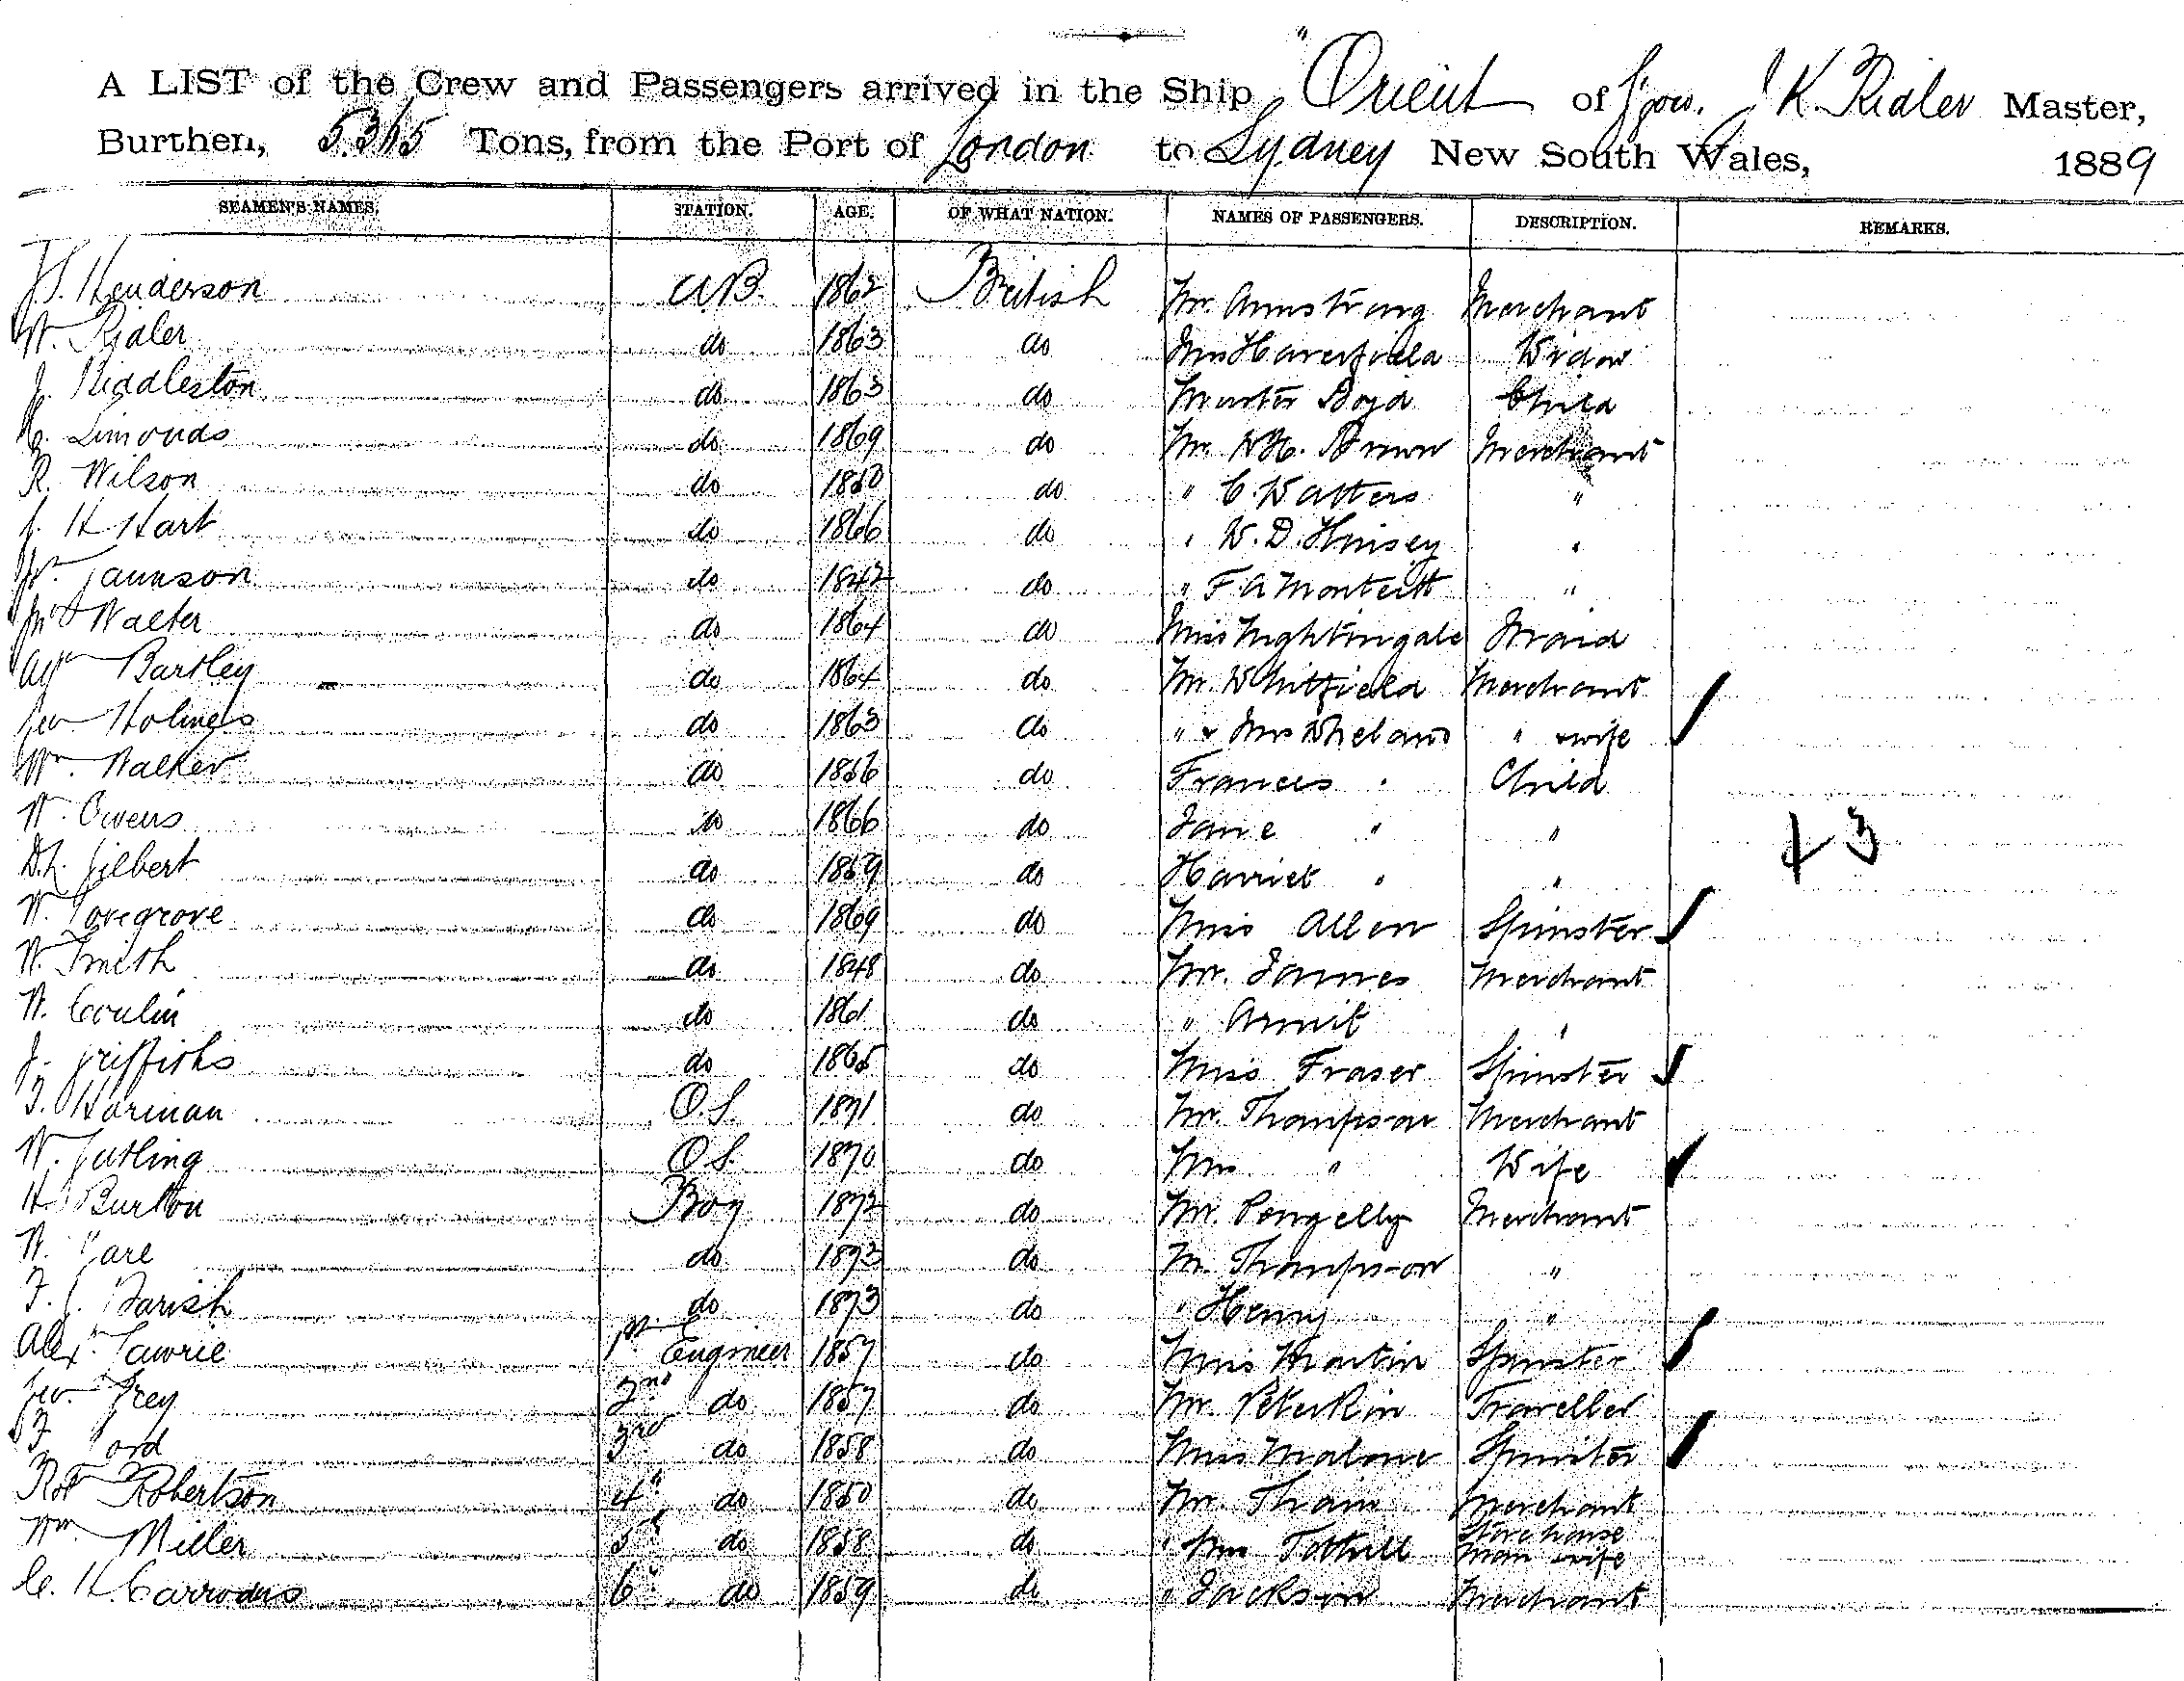 A LIST of the Crew and Passengers arrived in the Ship "Orient of J. K. Ridler Master,
Burthen, 5365 Tons, from the Port of London to Sydney New South Wales, 1889
SEAMEN'S NAMES. STATION. AGE. OF WHAT NATION. NAMES OF PASSENGERS. DESCRIPTION. REMARKS.
Henderson A.B. 1862 British Mr. Armstrong Merchant
W. Ridler do 1863 do Mrs Haverfield Widow
J. Riddleston do 1863 do Master Boyd Child
Simonds do 1869 do Mr. W.H. Brown Merchant
R. Wilson do 1850 do " C. Watters "
J. H Hart do 1866 do " W. D. Hinsey "
Wm Jamnson do 1842 do " F. A Monteith "
Walter do 1864 do Miss Nightingale Maid
Bartley do 1864 do Mr. Whitfield Merchant
Geo Holmes do 1863 do " & Mrs Whelans " & wife
Wm. Walker do 1856 do Frances " Child
W. Owens do 1866 do Jane " "
Gilbert do 1859 do Harriet " "
W. Lovegrove do 1869 do Miss Allen Spinster
W. Smith do 1848 do Mr. James Merchant
W. Conlin do 1861 do " Armit "
J. Griffiths do 1865 do Miss Fraser Spinster
T. Harman O.S. 1871 do Mr. Thompson Merchant
W. Gutling O.S. 1870 do Mrs " Wife
H. Burton Boy 1872 do Mr. Pengelly Merchant
W. do 1873 do Mr. Thompson "
F. J. Parish do 1873 do " Henry "
Alexr. Lawrie 1st Engineer 1857 do Miss Martin Spinster
Geo. Grey 2nd do 1857 do Mr. Peterkin Traveller
F Ford 3rd do 1858 do Miss Malone Spinster
Robt Robertson 4th do 1850 do Mr. Tham Merchant
Wm. Miller 5th do 1858 do " Mrs Tothill Storehouse man & wife
C. H. Carrodus 6th do 1859 do " Jackson Merchant